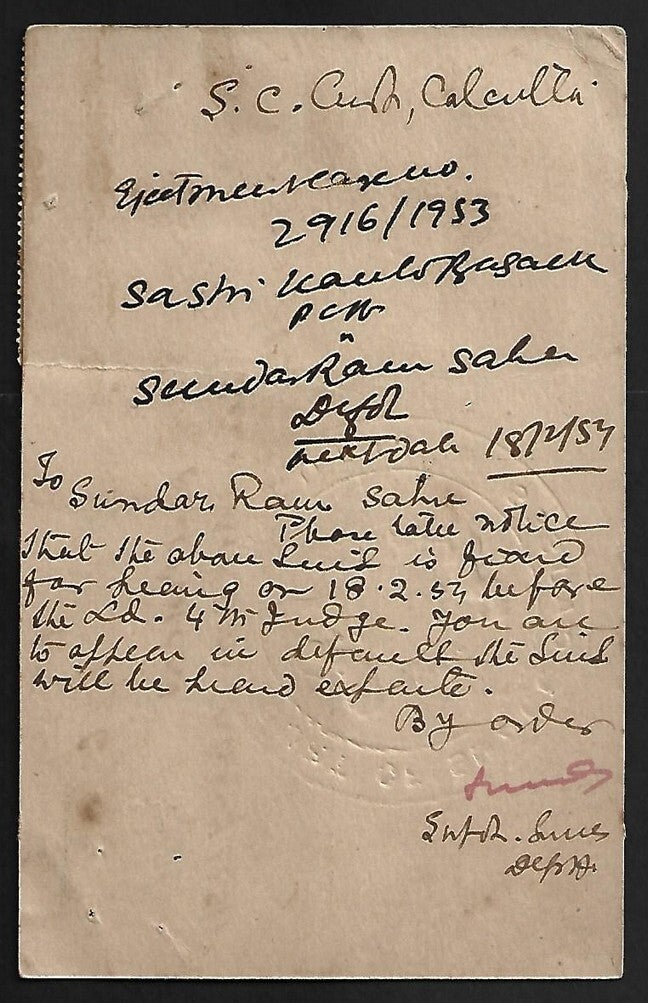 S. C. Court, Calcutta
Ejectment Case no.
2916/1953
Sashi Basack
Pltff
Sundar Ram Sahu
Defdt
next date 18/2/54
To
Sundar Ram Sahu
Please take notice
that the above Suit is fixed
for hearing on 18.2.54 before
the Ld. 4th Judge. You are
to appear in default the Suit
will be heard exparte.
By order
Supdt. Suits
Deptt.